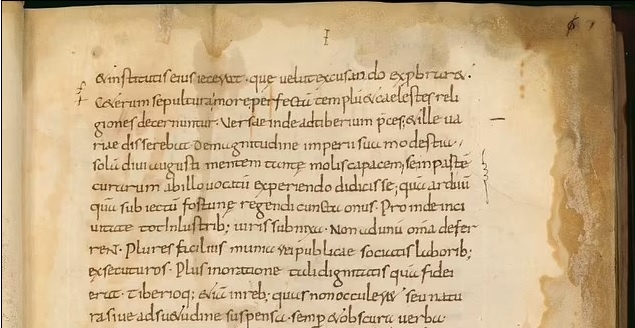 I
& institutis eius iecerat · que velut excusando exprobrar&·
Ceterum sepultura more perfecta templū & caelestes reli
giones decernuntur · Versae inde ad tiberium p̄ces; & ille va
riae disserebat De magnitudine imperii sua modestia ·,
solā divi augusti mentem tantę molis capacem, se in partē
curarum ab illo vocatū experiendo didicisse; quā arduū
quā subiectū fortunę regendi cuncta onus · Proinde inci
vitate tot Inlustrib; viris subnixa · Non adunū om̄a defer
reN̄ · Plures facilius munia rei publicae sociatis laborib;
exsecuturos · Plus inoratione tali dignitatis quā fidei
erat · Tiberioq; &iā inreb; quas nonocculer& seu natu
ra sive adsu&udine suspensa · semp & obscura verba